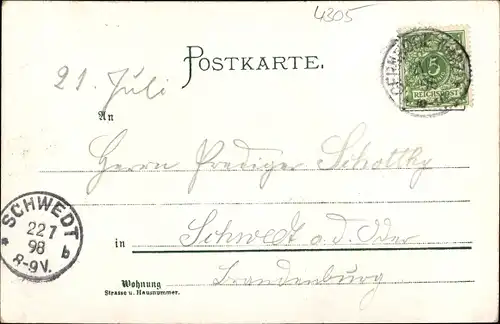 4305
POSTKARTE.
5
REICHSPOST
21. Juli
An
Herrn Prediger Schottky
SCHWEDT
22 7
98
8-9V.
* b
in Schwedt a. d. Oder
Brandenburg
Wohnung
Strasse u. Hausnummer.